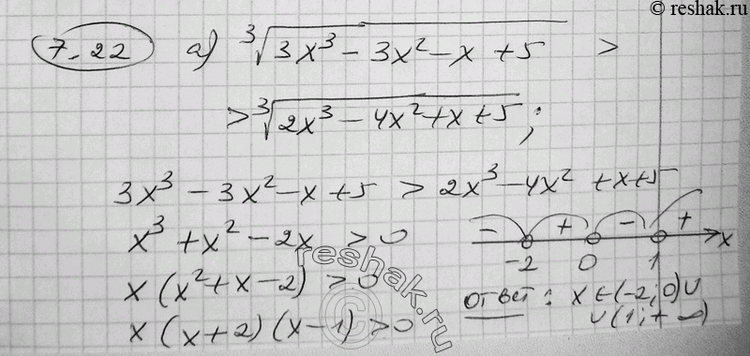 © reshak.ru
7.22 а) ∛(3x³ - 3x² - x + 5) >
> ∛(2x³ - 4x² + x + 5) ;
3x³ - 3x² - x + 5 > 2x³ - 4x² + x + 5
x³ + x² - 2x > 0
x (x² + x - 2) > 0
x (x + 2) (x - 1) > 0
- + - + x
-2 0 1
Ответ: x ∈ (-2; 0) ∪
∪ (1; + ∞)
reshak.ru
©